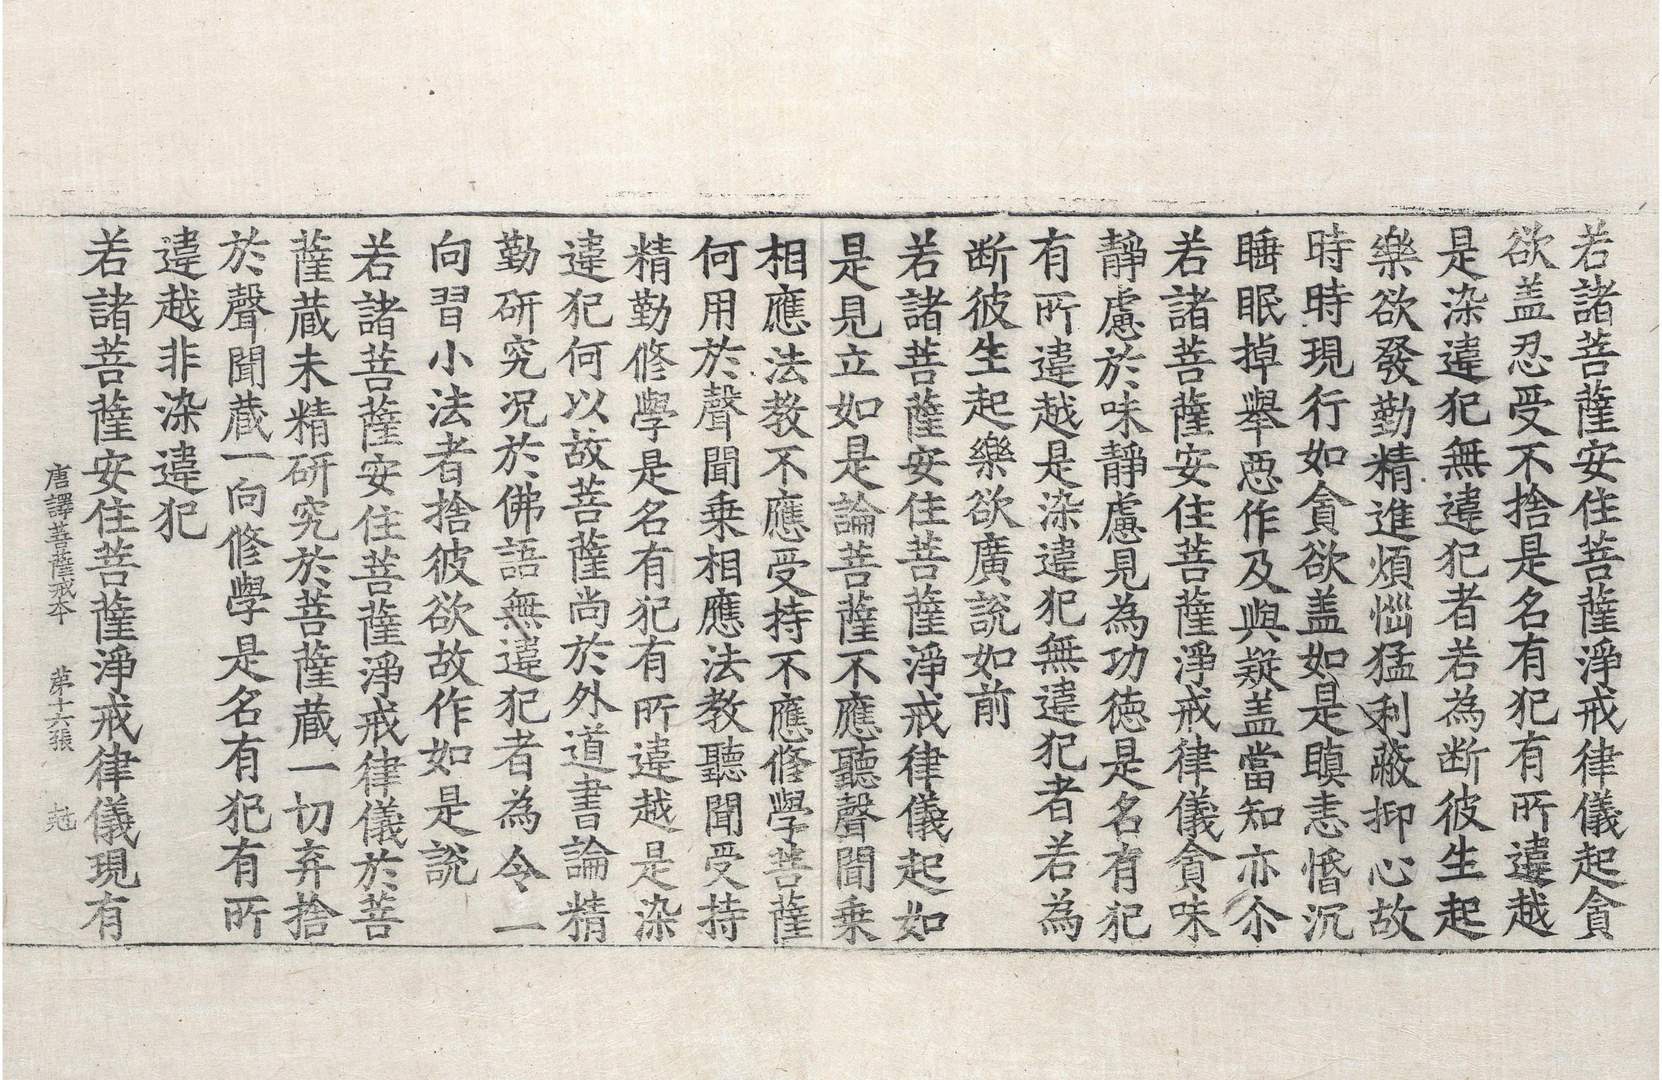 若諸菩薩安住菩薩淨戒律儀起貪
欲盖忍受不捨是名有犯有所違越
是染違犯無違犯者若為断彼生起
樂欲發勤精進煩惱猛利蔽抑心故
時時現行如貪欲盖如是瞋恚惛沉
睡眠掉舉惡作及與疑盖當知亦尒
若諸菩薩安住菩薩淨戒律儀貪味
靜慮於味靜慮見為功徳是名有犯
有所違越是染違犯無違犯者若為
断彼生起樂欲廣說如前
若諸菩薩安住菩薩淨戒律儀起如
是見立如是論菩薩不應聽聲聞乗
相應法教不應受持不應修學菩薩
何用於聲聞乗相應法教聽聞受持
精勤修學是名有犯有所違越是染
違犯何以故菩薩尚於外道書論精
勤研究况於佛語無違犯者為令一
向習小法者捨彼欲故作如是說
若諸菩薩安住菩薩淨戒律儀於菩
薩蔵未精研究於菩薩蔵一切弃捨
於聲聞蔵一向修學是名有犯有所
違越非染違犯
若諸菩薩安住菩薩淨戒律儀現有
唐譯菩薩戒本 苐十六張